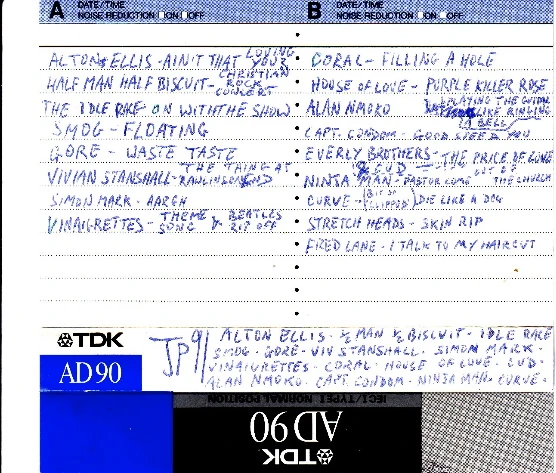 A DATE/TIME
NOISE REDUCTION ON OFF
ALTON ELLIS - AIN'T THAT LOVING YOU
HALF MAN HALF BISCUIT - CHRISTIAN ROCK CONCERT
THE IDLE RACE ON WITH THE SHOW
SMOG - FLOATING
GORE - WASTE TASTE
VIVIAN STANSHALL - THE THING AT RAWLINSON END
SIMON MARK - AARGH
VINAIGRETTES - THEME SONG & BEATLES RIP OFF
B DATE/TIME
NOISE REDUCTION ON OFF
CORAL - FILLING A HOLE
HOUSE OF LOVE - PURPLE KILLER ROSE
ALAN NMOKO PLAYING THE GUITAR LIKE RINGING A BELL
CAPT. CONDOM - GOOD SPEED YOU
EVERLY BROTHERS - THE PRICE OF LOVE
NINJA MAN - PASTOR COME OUT OF THE CHURCH
CURVE - (BIT CLIPPED) DIE LIKE A DOG
STRETCH HEADS - SKIN RIP
FRED LANE - I TALK TO MY HAIRCUT
TDK
AD 90
JP 91
ALTON ELLIS · ½ MAN ½ BISCUIT · IDLE RACE
SMOG · GORE · VIV STANSHALL · SIMON MARK ·
VINAIGRETTES · CORAL · HOUSE OF LOVE · LUD ·
ALAN NMOKO · CAPT. CONDOM · NINJA MAN · CURVE ·
IECI/TYPE I NORMAL POSITION
AD 90
TDK